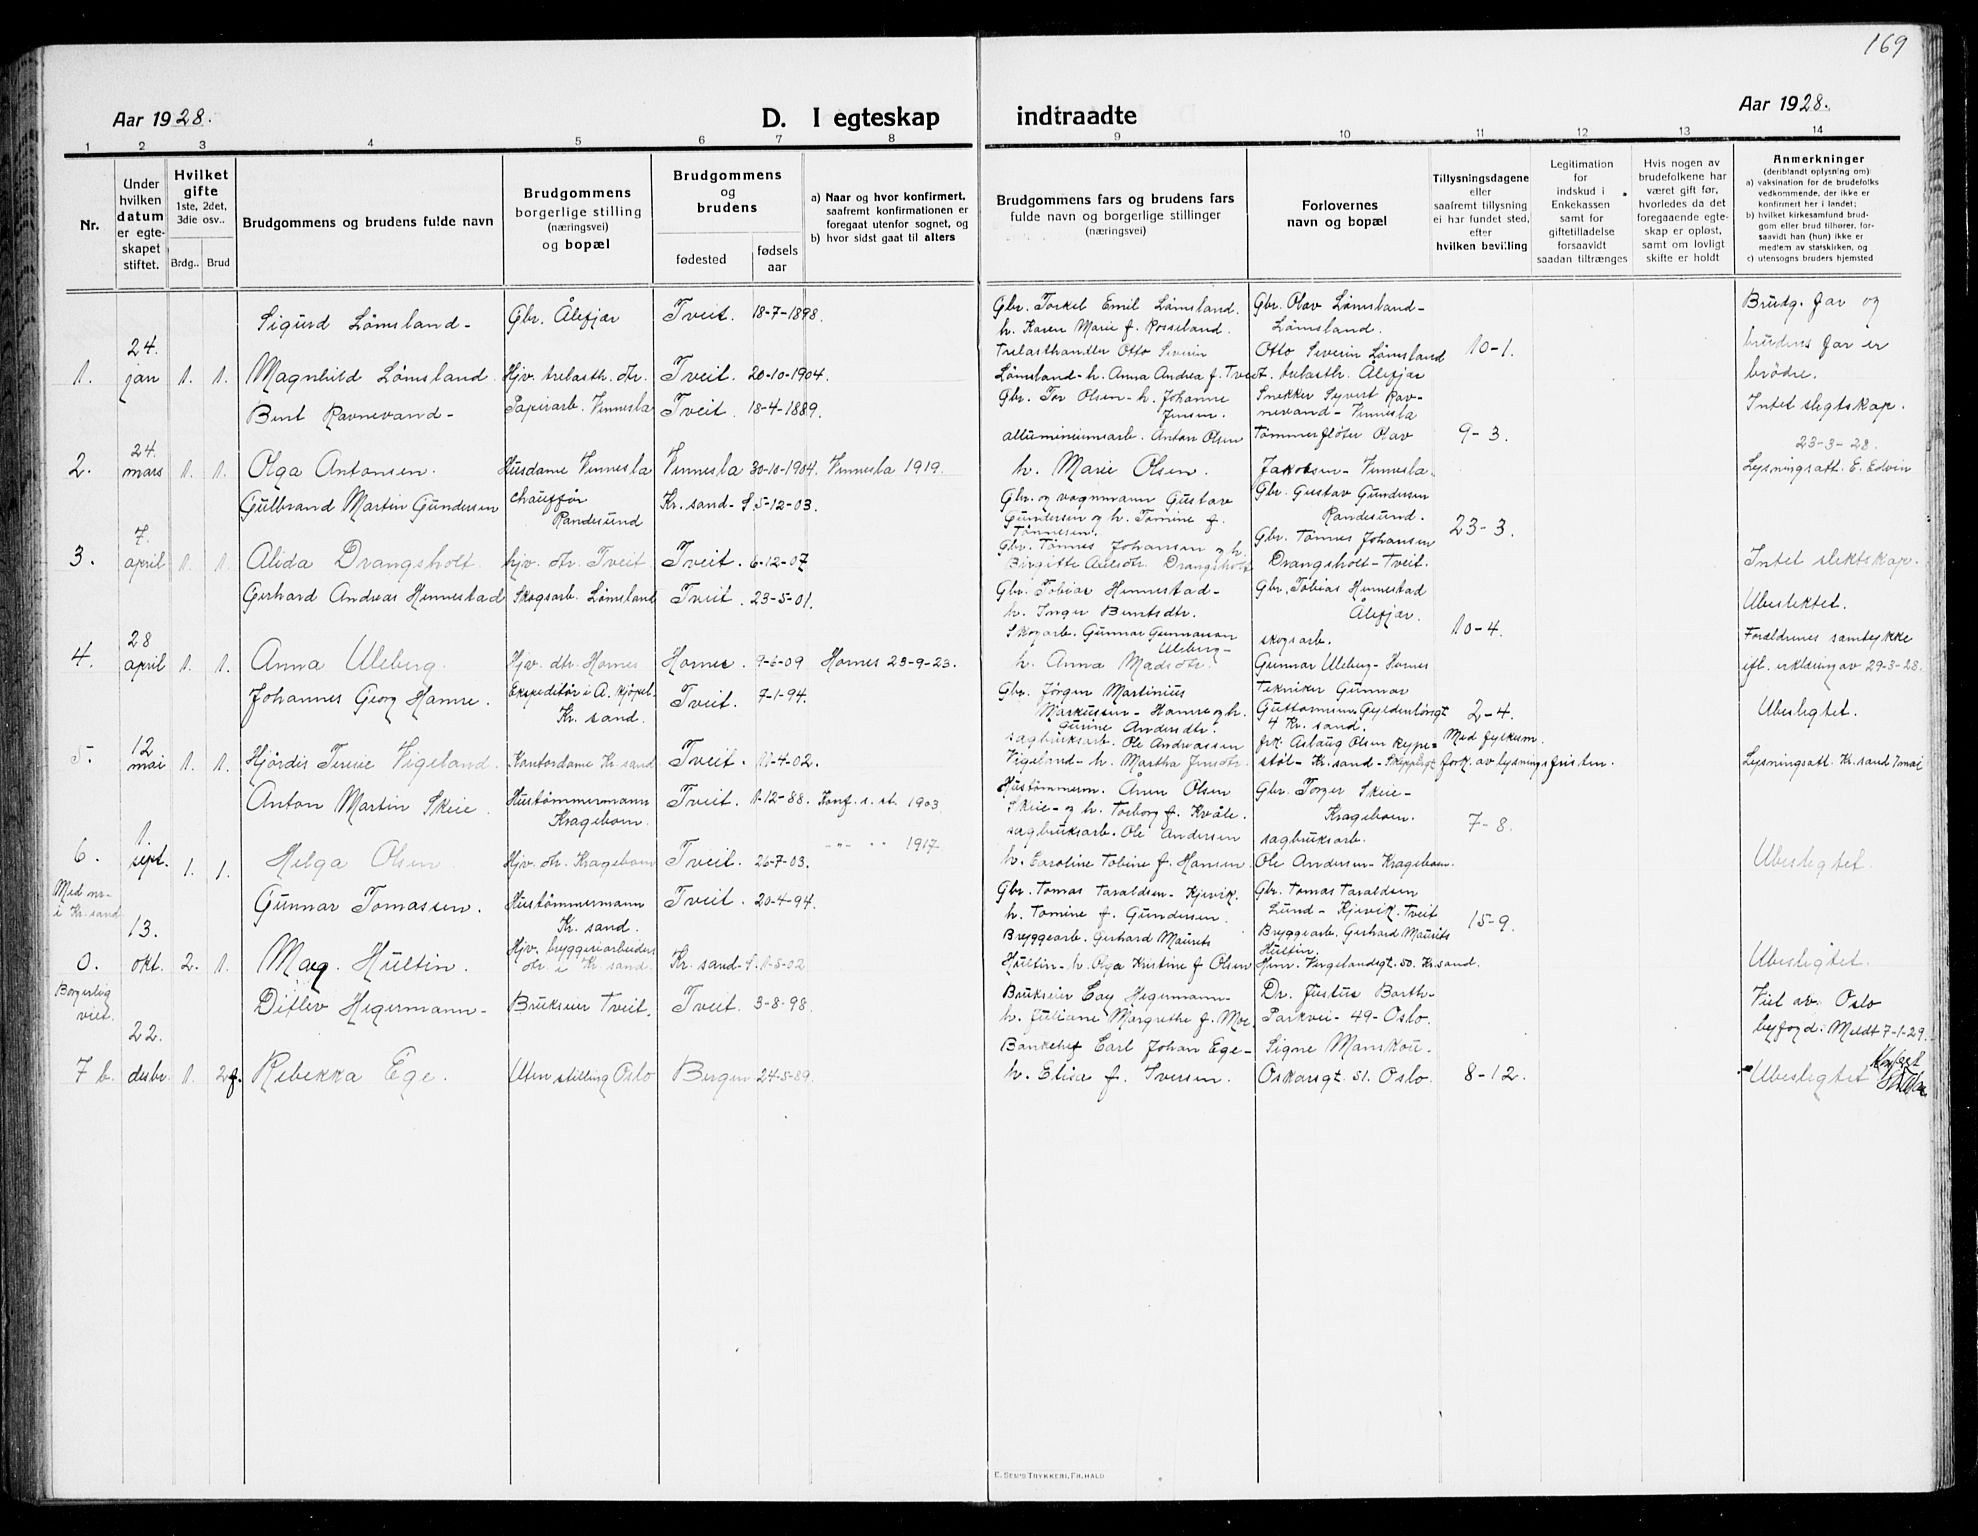 169
Aar 1928.
D. I egteskap indtraadte
Aar 1928.
1 2 3 4 5 6 7 8 9 10 11 12 13 14
Nr.
Under hvilken datum er egteskapet stiftet.
Hvilket gifte 1ste, 2det, 3die osv..
Brdg.. Brud
Brudgommens og brudens fulde navn
Brudgommens borgerlige stilling (næringsvei) og bopæl
Brudgommens og brudens
fødested
fødsels aar
a) Naar og hvor konfirmert, saafremt konfirmationen er foregaat utenfor sognet, og
b) hvor sidst gaat til alters
Brudgommens fars og brudens fars fulde navn og borgerlige stillinger (næringsvei)
Forlovernes navn og bopæl
Tillysningsdagene eller saafremt tillysning ei har fundet sted, efter hvilken bevilling
Legitimation for indskud i Enkekassen samt for giftetilladelse forsaavidt saadan tiltrænges
Hvis nogen av brudefolkene har været gift før, hvorledes da det foregaaende egteskap er opløst, samt om lovligt skifte er holdt
Anmerkninger (deriblandt oplysning om):
a) vaksination for de brudefolks vedkommende, der ikke er konfirmert her i landet;
b) hvilket kirkesamfund brudgom eller brud tilhører, forsaavidt han (hun) ikke er medlem av statskirken, og
c) utensogns bruders hjemsted
Sigurd Lømsland - Gbr. Ålefjær Tveit. 18-7-1898. Gbr. Torkel Emil Lømsland. h. Karen Marie f. Rosseland. Gbr. Olav Lømsland - Lømsland. Brudg. far og
1. 24. jan 1. 1. Magnhild Lømsland Hjv. trelasth. dtr. Tveit. 20-10-1904. Trelasthandler Otto Severin Lømsland - h. Anna Andrea f. Tveit. Otto Severin Lømsland trelasth. Ålefjær 10-1. brudens far er brødre.
Bent Ravnevand - Papirarb. Vennesla Tveit. 18-4-1889. Gbr. Tor Olsen - h. Johanne Jensen. Snekker Syvert Ravnevand - Vennesla Intet slegtskap.
2. 24. mars 1. 1. Olga Antonsen. Husdame Vennesla Vennesla 30-10-1904. Vennesla 1919. alluminiumsarb. Anton Olsen h. Marie Olsen. Tømmerfløter Olav Jakobsen - Vennesla. 9-3. 23-3-28. Lysningsatt. E. Edvin
Gulbrand Martin Gundersen chauffør Randesund Kr. sand - S. 5-12-03. Gbr. og vognmann Gustav Gundersen og h. Tomine f. Tønnesen. Gbr. Gustav Gundersen Randesund.
3. 7. april 1. 1. Alida Drangsholt hjv. dtr. Tveit Tveit. 6-12-07 Gbr. Tønnes Johansen og h. Birgitte Drangsholt Gbr. Tønnes Johansen Drangsholt - Tveit. 23-3. Intet slektskap.
Gerhard Andreas Hennestad Skogsarb. Lømsland Tveit. 23-5-01. Gbr. Tobias Hennestad - h. Inger Bentsdtr. Gbr. Tobias Hennestad Ålefjær. Ubeslektet.
4. 28 april 1. 1. Anna Uleberg. Hjv. dtr. Hornes Hornes. 9-6-09 Hornes 23-9-23. Skogarb. Gunnar Gunnarson Uleberg - h. Anna Madsdtr. skogsarb. Gunnar Uleberg - Hornes 10-4. Forældrenes samtykke ifl. erklæring av 29-3-28.
Johannes Georg Hamre. Ekspeditør i A. kjøpel. Kr. sand. Tveit. 7-1-94. Gbr. Jørgen Martinius Markussen - Hamre og h. Gurine Andersdtr. Tekniker Gunnar Guttormsen Gyldenløvgt 4 Kr. sand. Ubeslegtet.
5. 12 mai 1. 1. Hjørdis Terese Vigeland. Kontordame Kr. sand Tveit. 11-4-02. sagbruksarb. Ole Andreassen Vigeland - h. Martha Jensdtr. frk. Asbaug Olsen Rypestøl - Kr. sand - Skippergt 2-4. Med fylkesm. fork. av lysningsfristen. Lysningsatt. Kr. sand 7 mai
Anton Martin Skeie. Hustømmermann Krageboen. Tveit. 1-12-88. Konf. s. st. 1903 Hustømmerm. Ånen Olsen Skeie - og h. Torborg f. Kvåle. Gbr. Torger Skeie - Krageboen.
6. 1. sept. 1. 1. Helga Olsen Hjv. dtr. Krageboen Tveit. 26-7-03. " " " 1917. sagbruksarb. Ole Andersen h. Caroline Tobine f. Hansen. sagbruksarb. Ole Andersen - Krageboen. 7-8. Ubeslegtet
Med nr - i Kr. sand Gunnar Tomassen. Hustømmermann Kr. sand. Tveit. 20-4-94. Gbr. Tomas Taraldsen - Kjevik. h. Tomine f. Gundersen. Gbr. Tomas Taraldsen Lund - Kjevik. Tveit
0. 13. okt. 2. 1. Mag. Hultin. Hjv. bryggeriarbeiders dtr. i Kr. sand. Kr. sand S. 1-5-02 Bryggearb. Gerhard Maurits Hultin - h. Olga Kristine f Olsen Bryggearb. Gerhard Maurits Hultin Henr. Vergelandsgt. 50. Kr. sand. 15-9. Ubeslegtet.
Borgerlig viet. Ditlev Hegermann - Brukseier Tveit. Tveit. 3-8-98. Brukseier Cay Hegermann - h. Juliane Margrethe f. Moe Dr. Justus Barth - Parkvei - 49 - Oslo. Viet av Oslo byfogd: Meldt 7-1-29.
7 b. 22. desbr. 1. 2 f. Rebekka Ege. Uten stilling Oslo Bergen 24-5-89. Bankchef Carl Johan Ege - h. Elisa f. Iversen. Signe Manskou. Oskarsgt. 51. Oslo. 8-12. Ubeslegtet
E. SEM'S TRYKKERI, FR.HALD